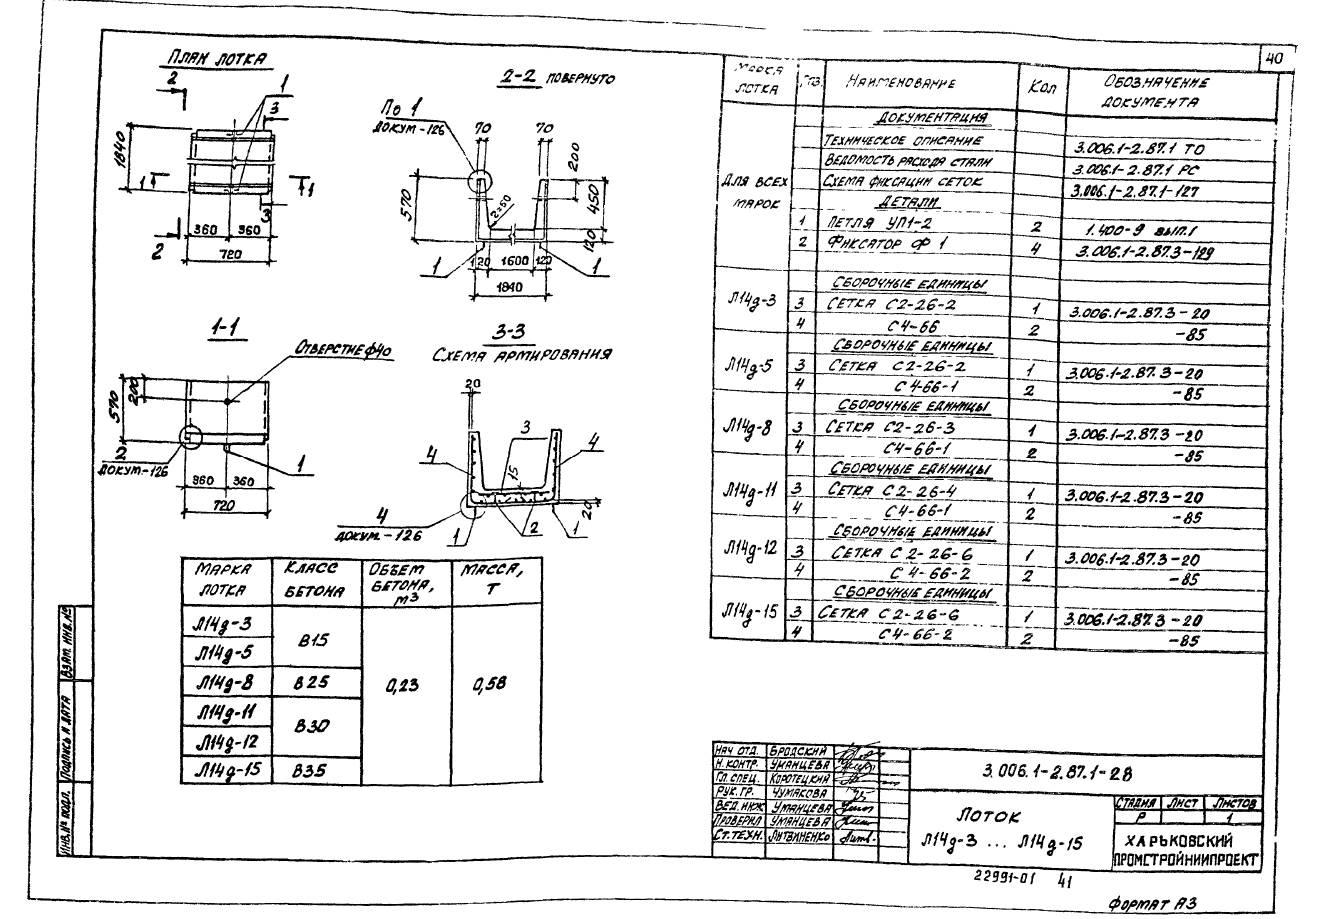 40
ПЛАН ЛОТКА
2
1
3
1840
1
1
3
360 360
2
720
2-2 ПОВЕРНУТО
По 1
ДОКУМ-126
70 70
200
570
450
120
1 1
120 1600 120
1840
1-1
ОТВЕРСТИЕ Ф40
570
200
2
ДОКУМ-126
1
360 360
720
3-3
СХЕМА АРМИРОВАНИЯ
20
3
4
4
15
20
4
ДОКУМ-126
1
2
1
МАРКА ЛОТКА КЛАСС БЕТОНА ОБЪЕМ БЕТОНА, М3 МАССА, Т
Л14д-3 В15 0,23 0,58
Л14д-5
Л14д-8 В25
Л14д-11 В30
Л14д-12
Л14д-15 В35
МАРКА ЛОТКА ПОЗ. НАИМЕНОВАНИЕ КОЛ ОБОЗНАЧЕНИЕ ДОКУМЕНТА
ДЛЯ ВСЕХ МАРОК
ДОКУМЕНТАЦИЯ
ТЕХНИЧЕСКОЕ ОПИСАНИЕ 3.006.1-2.87.1 ТО
ВЕДОМОСТЬ РАСХОДА СТАЛИ 3.006.1-2.87.1 РС
СХЕМА ФИКСАЦИИ СЕТОК 3.006.1-2.87.1-127
ДЕТАЛИ
1 ПЕТЛЯ УП1-2 2 1.400-9 ВЫП.1
2 ФИКСАТОР Ф 1 4 3.006.1-2.87.3-129
СБОРОЧНЫЕ ЕДИНИЦЫ
Л14д-3 3 СЕТКА С2-26-2 1 3.006.1-2.87.3-20
4 С4-66 2 -85
СБОРОЧНЫЕ ЕДИНИЦЫ
Л14д-5 3 СЕТКА С2-26-2 1 3.006.1-2.87.3-20
4 С4-66-1 2 -85
СБОРОЧНЫЕ ЕДИНИЦЫ
Л14д-8 3 СЕТКА С2-26-3 1 3.006.1-2.87.3-20
4 С4-66-1 2 -85
СБОРОЧНЫЕ ЕДИНИЦЫ
Л14д-11 3 СЕТКА С2-26-4 1 3.006.1-2.87.3-20
4 С4-66-1 2 -85
СБОРОЧНЫЕ ЕДИНИЦЫ
Л14д-12 3 СЕТКА С2-26-6 1 3.006.1-2.87.3-20
4 С4-66-2 2 -85
СБОРОЧНЫЕ ЕДИНИЦЫ
Л14д-15 3 СЕТКА С2-26-6 1 3.006.1-2.87.3-20
4 С4-66-2 2 -85
НАЧ ОТД. БРОДСКИЙ
Н.КОНТР. УМАНЦЕВА
ГЛ.СПЕЦ. КОРОТЕЦКИЙ
РУК.ГР. ЧУМАКОВА
ВЕД.ИНЖ УМАНЦЕВА
ПРОВЕРИЛ УМАНЦЕВА
СТ.ТЕХН. ЛИТВИНЕНКО
3.006.1-2.87.1-28
ЛОТОК
Л14д-3 ... Л14д-15
СТАДИЯ ЛИСТ ЛИСТОВ
Р 1
ХАРЬКОВСКИЙ
ПРОМСТРОЙНИИПРОЕКТ
22991-01 41
ФОРМАТ А3
ВЗАМ. ИНВ.№
ПОДПИСЬ И ДАТА
ИНВ.№ ПОДЛ.